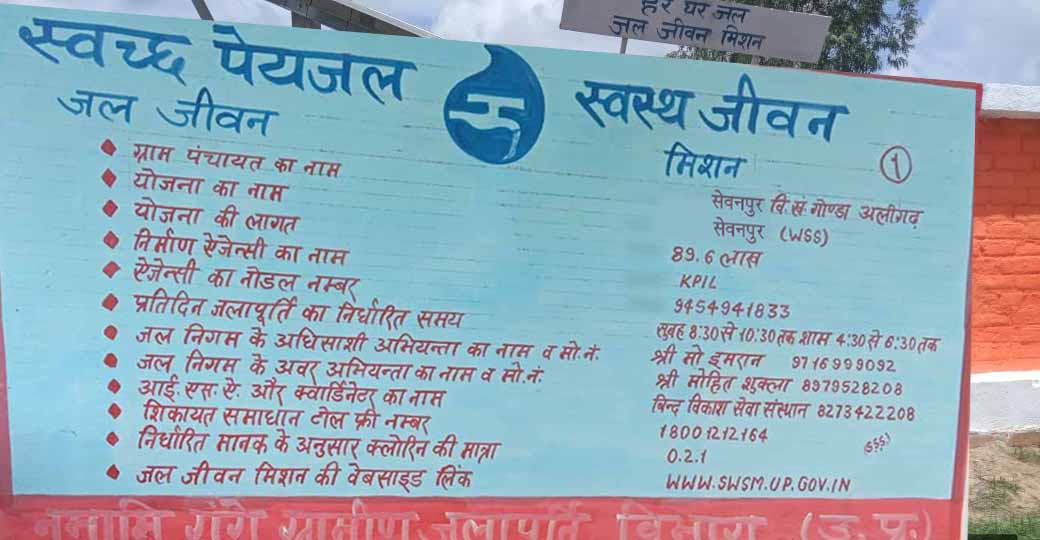 हर घर जल
जल जीवन मिशन
स्वच्छ पेयजल स्वस्थ जीवन
जल जीवन मिशन
①
ग्राम पंचायत का नाम सेवनपुर वि.ख. गोण्डा अलीगढ़
योजना का नाम सेवनपुर (WSS)
योजना की लागत 89.6 लाख
निर्माण ऐजेन्सी का नाम KPIL
ऐजेन्सी का नोडल नम्बर 9454941833
प्रतिदिन जलापूर्ति का निर्धारित समय सुबह 8:30 से 10:30 तक शाम 4:30 से 6:30 तक
जल निगम के अधिसाशी अभियन्ता का नाम व मो.नं. श्री मो इमरान 9716999092
जल निगम के अवर अभियन्ता का नाम व मो.नं. श्री मोहित शुक्ला 8979528208
आई.एस.ऐ. और क्वार्डिनेटर का नाम बिन्द विकाश सेवा संस्थान 8273422208
शिकायत समाधान टोल फ्री नम्बर 18001212164
निर्धारित मानक के अनुसार क्लोरिन की मात्रा 0.2.1
जल जीवन मिशन की वेबसाइड लिंक WWW.SWSM.UP.GOV.IN
नमामि गंगे ग्रामीण जलापूर्ति विभाग (उ.प्र.)